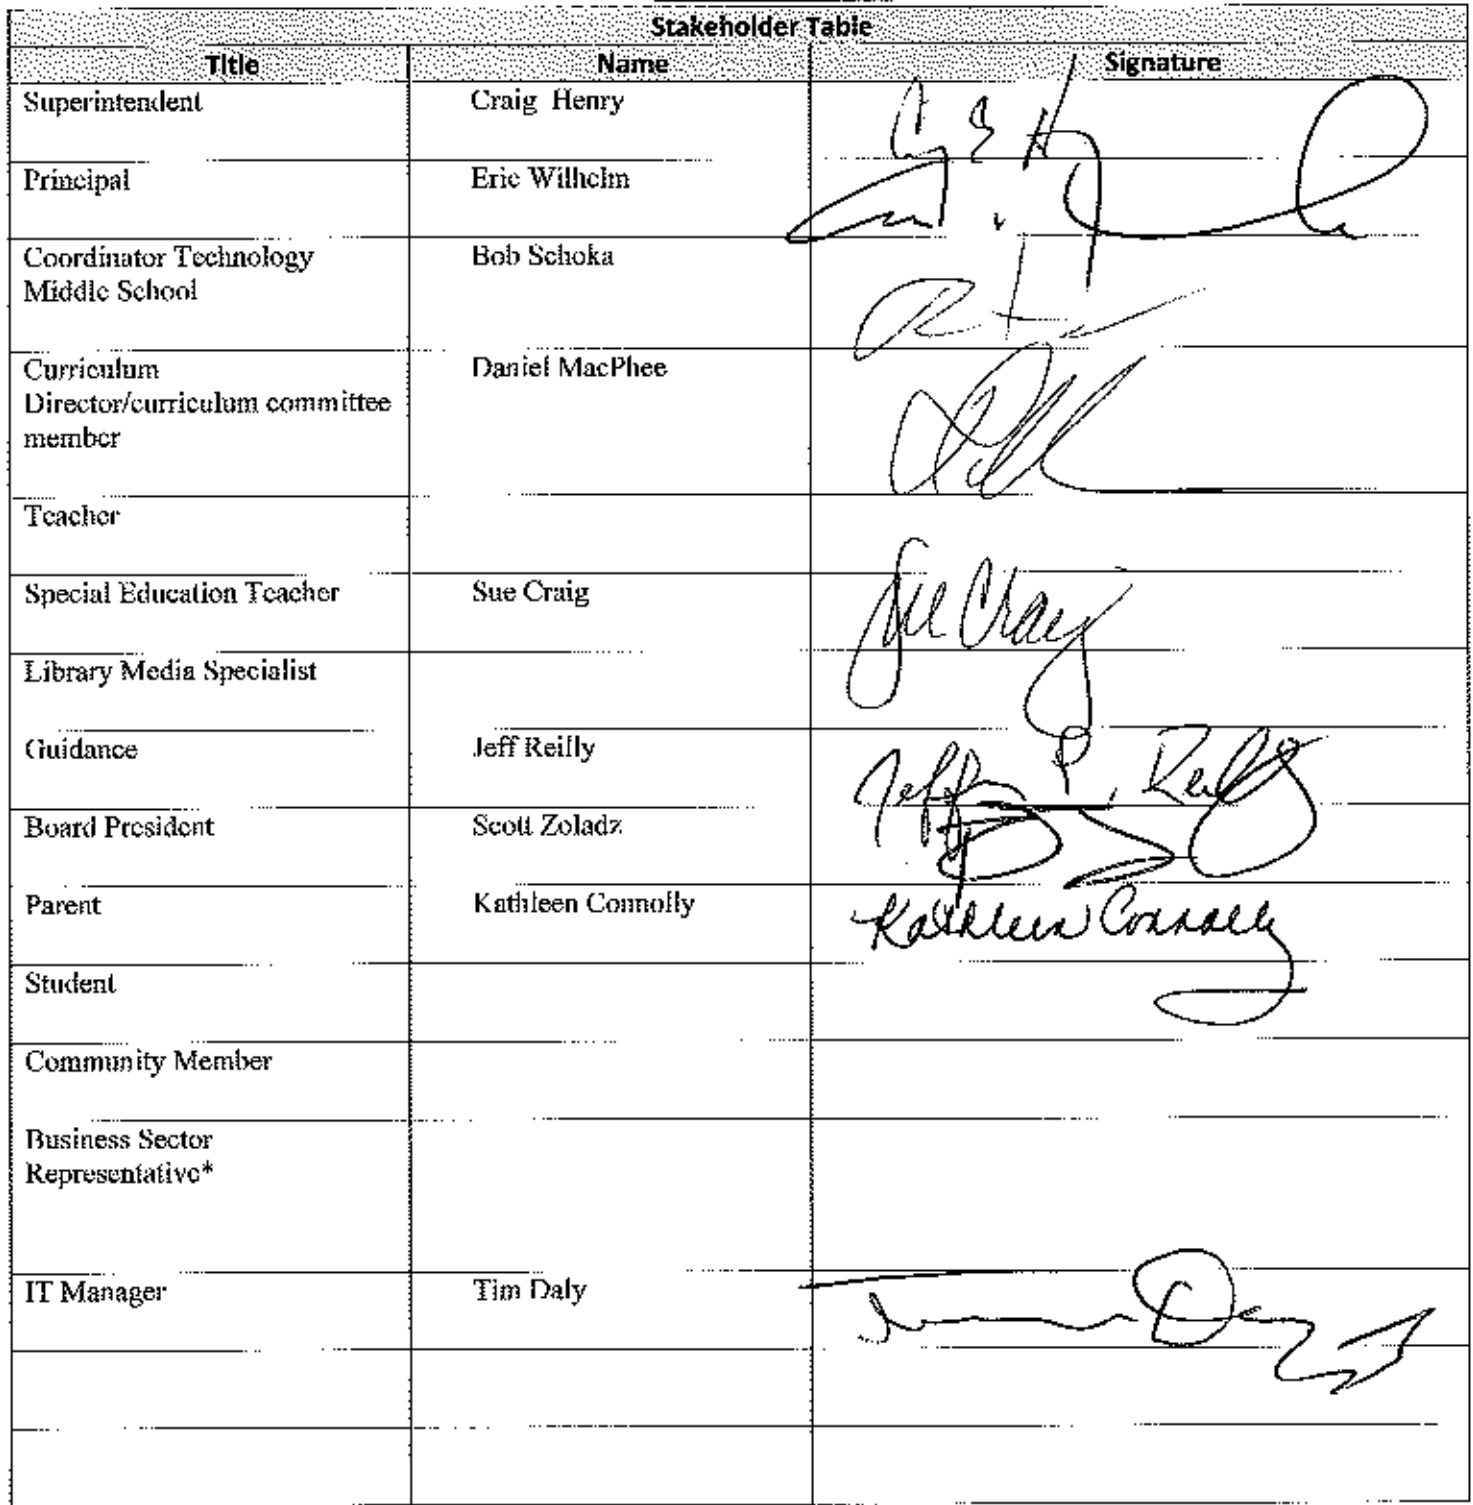 Stakeholder Table
Title Name Signature
Superintendent Craig Henry
Principal Eric Wilhelm
Coordinator Technology Bob Schoka
Middle School
Curriculum Daniel MacPhee
Director/curriculum committee
member
Teacher
Special Education Teacher Sue Craig Sue Craig
Library Media Specialist
Guidance Jeff Reilly Jeff P Reilly
Board President Scott Zoladz
Parent Kathleen Connolly Kathleen Connolly
Student
Community Member
Business Sector
Representative*
IT Manager Tim Daly